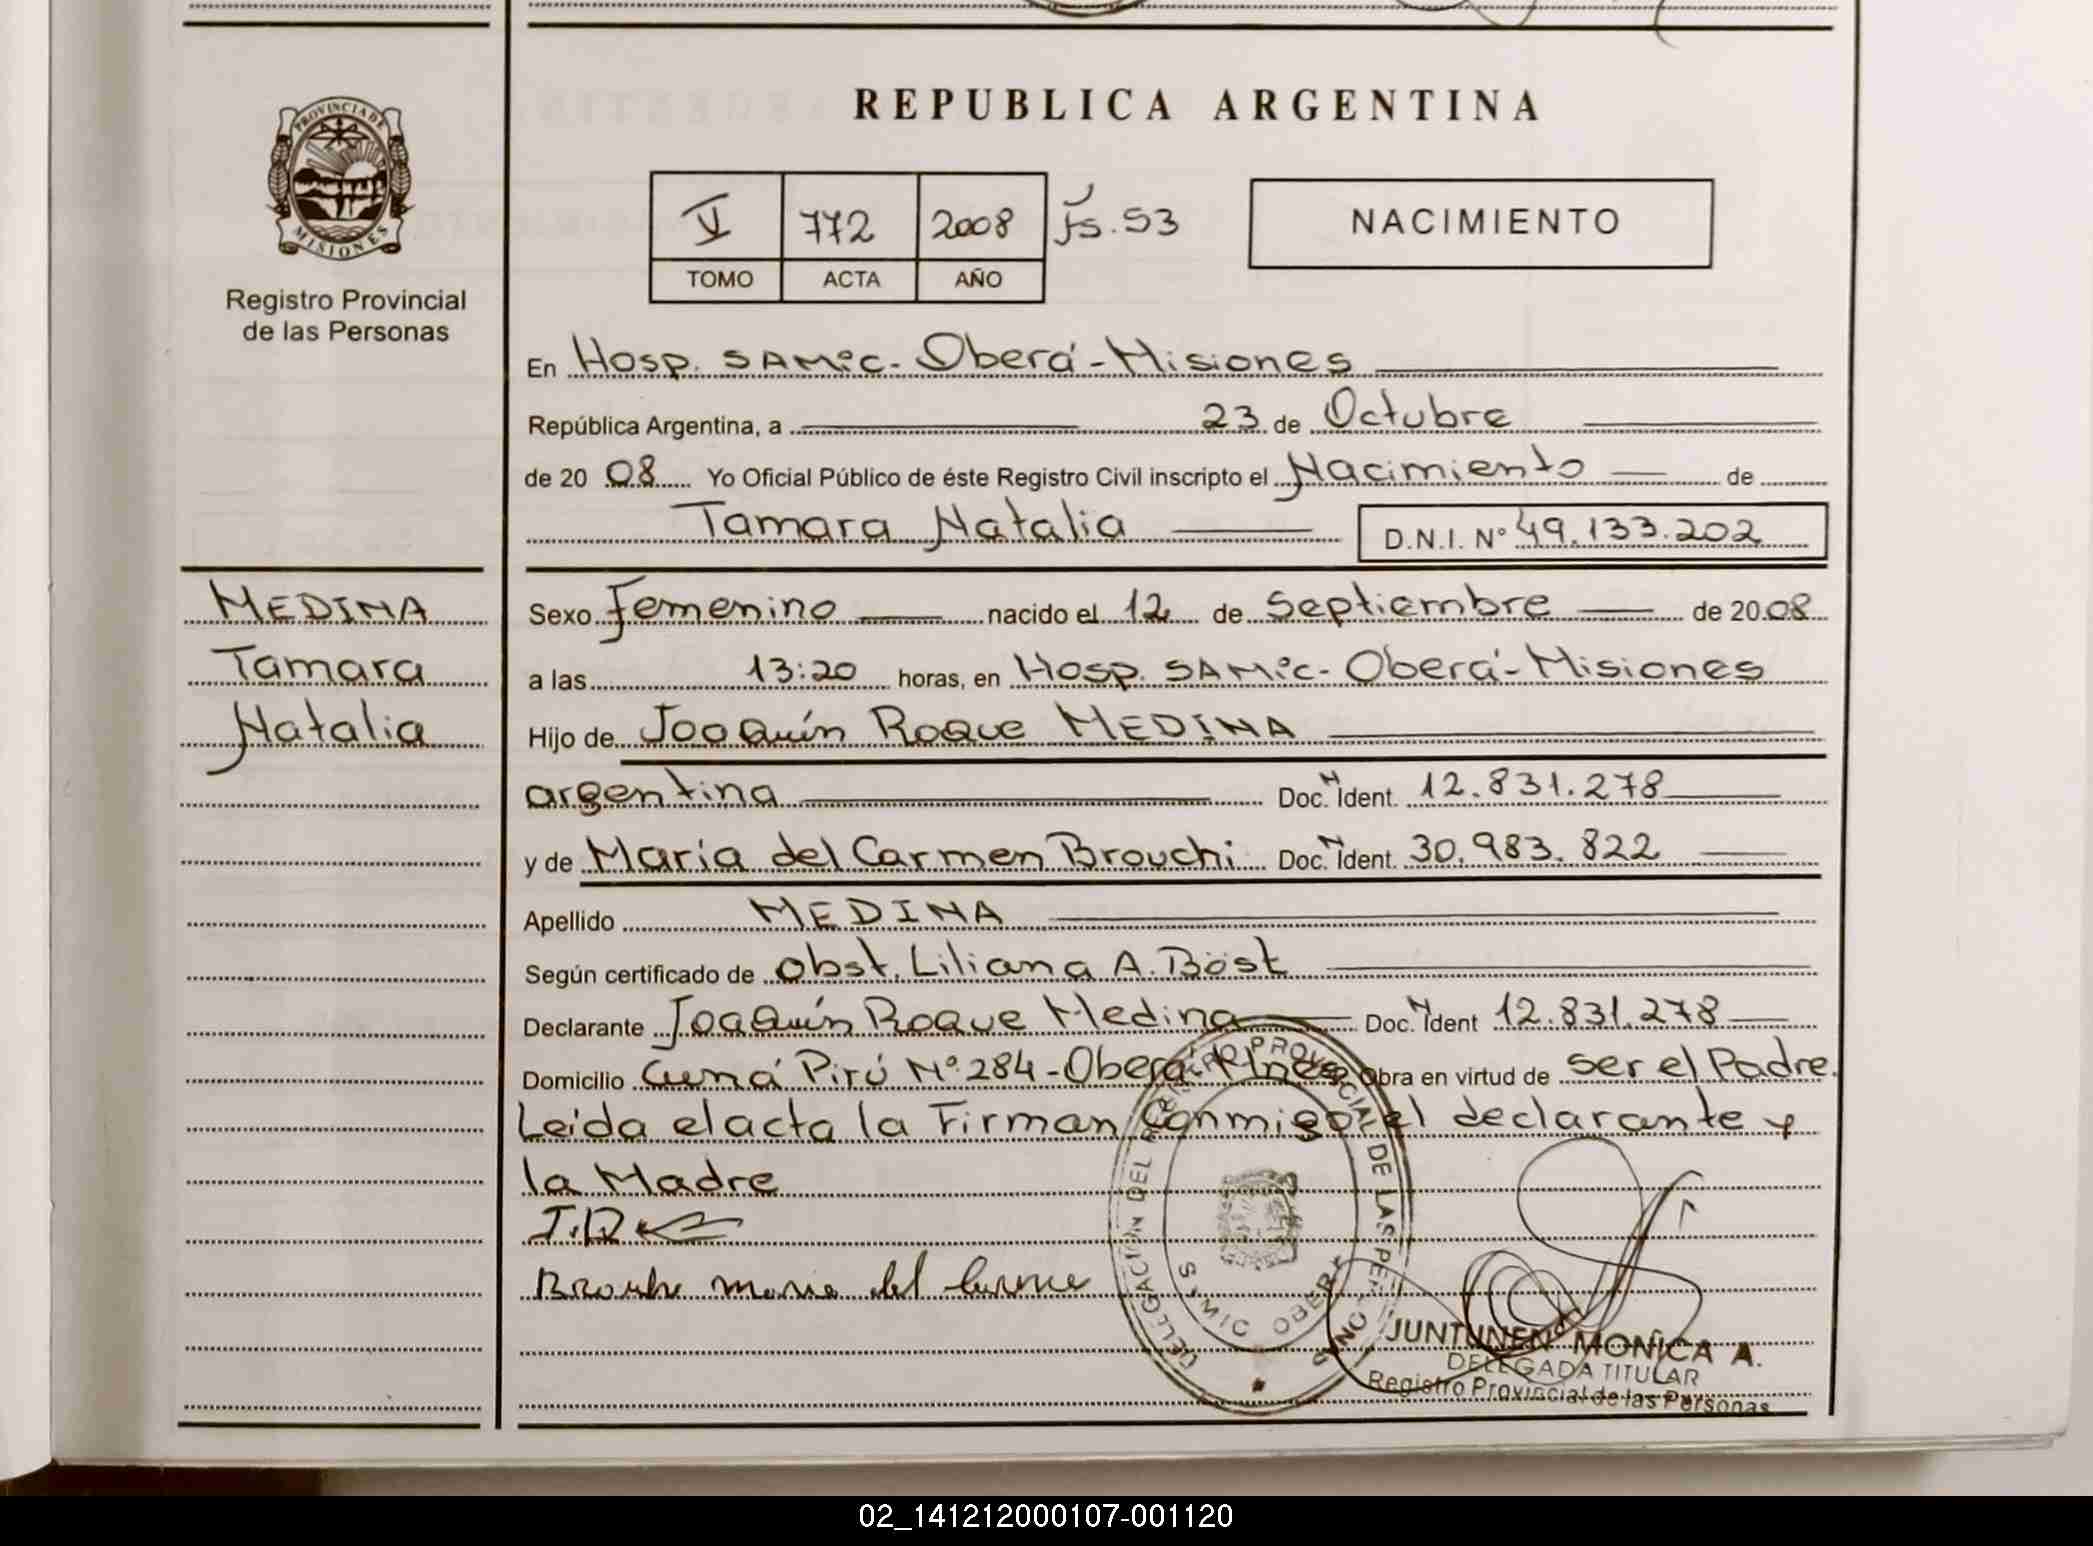 PROVINCIA DE
MISIONES
Registro Provincial
de las Personas
REPUBLICA ARGENTINA
V 772 2008 Fs. 53
TOMO ACTA AÑO
NACIMIENTO
En Hosp. SAMIC - Oberá - Misiones
República Argentina, a 23 de Octubre
de 20 08 Yo Oficial Público de éste Registro Civil inscripto el Nacimiento de
Tamara Natalia D.N.I. N° 49.133.202
MEDINA
Tamara
Natalia
Sexo Femenino nacido el 12 de Septiembre de 20 08
a las 13:20 horas, en Hosp. SAMIC - Oberá - Misiones
Hijo de Joaquín Roque MEDINA
argentina Doc. N Ident. 12.831.278
y de María del Carmen Brouchi Doc. N Ident. 30.983.822
Apellido MEDINA
Según certificado de obst. Liliana A. Böst
Declarante Joaquín Roque Medina Doc. N Ident 12.831.278
Domicilio Cuná Pirú N° 284 - Oberá Mnes Obra en virtud de ser el Padre.
Leída el acta la Firman Conmigo, el declarante y
la Madre
DELEGACIÓN DEL REGISTRO PROVINCIAL DE LAS PERSONAS
SAMIC OBERA
JUNTUNEN MONICA A.
DELEGADA TITULAR
Registro Provincial de las Personas
02_141212000107-001120